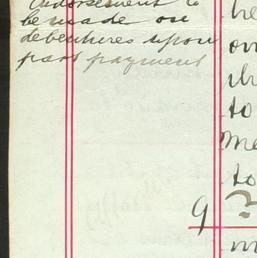 Endorsement to
be made on
debentures upon
part payment
he
on
th
to
me
to
9
m